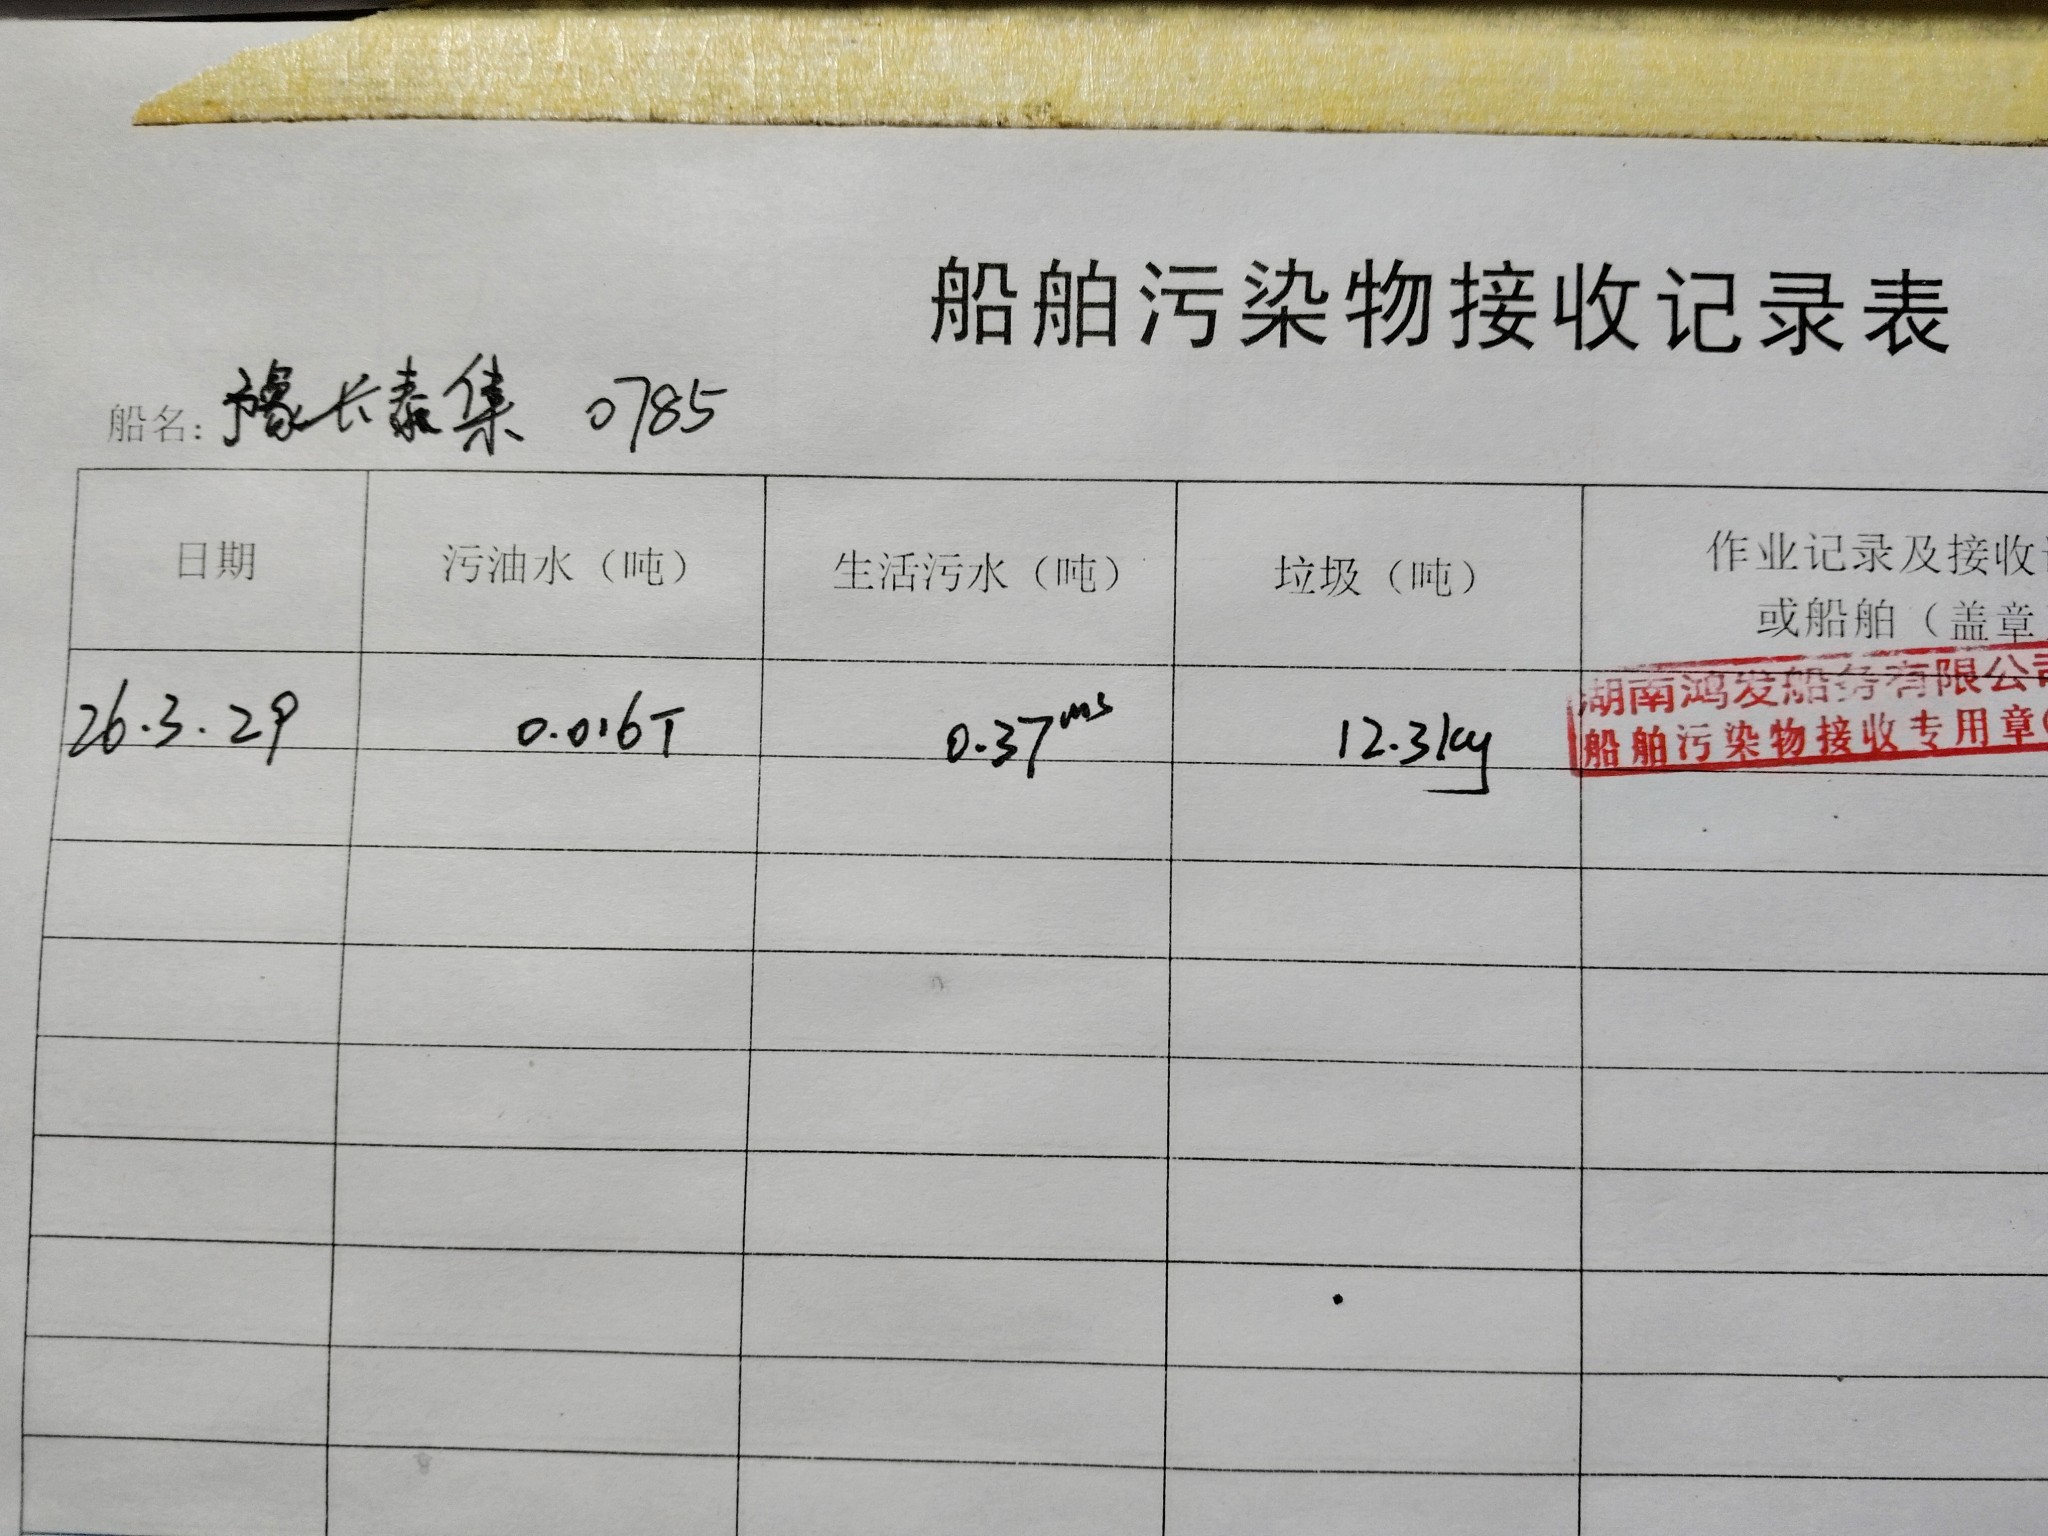 船舶污染物接收记录表
船名: 豫长泰集 0785
日期 污油水（吨） 生活污水（吨） 垃圾（吨） 作业记录及接收
或船舶（盖章
26.3.29 0.016T 0.37m3 12.3kg
湖南鸿发船务有限公司
船舶污染物接收专用章(